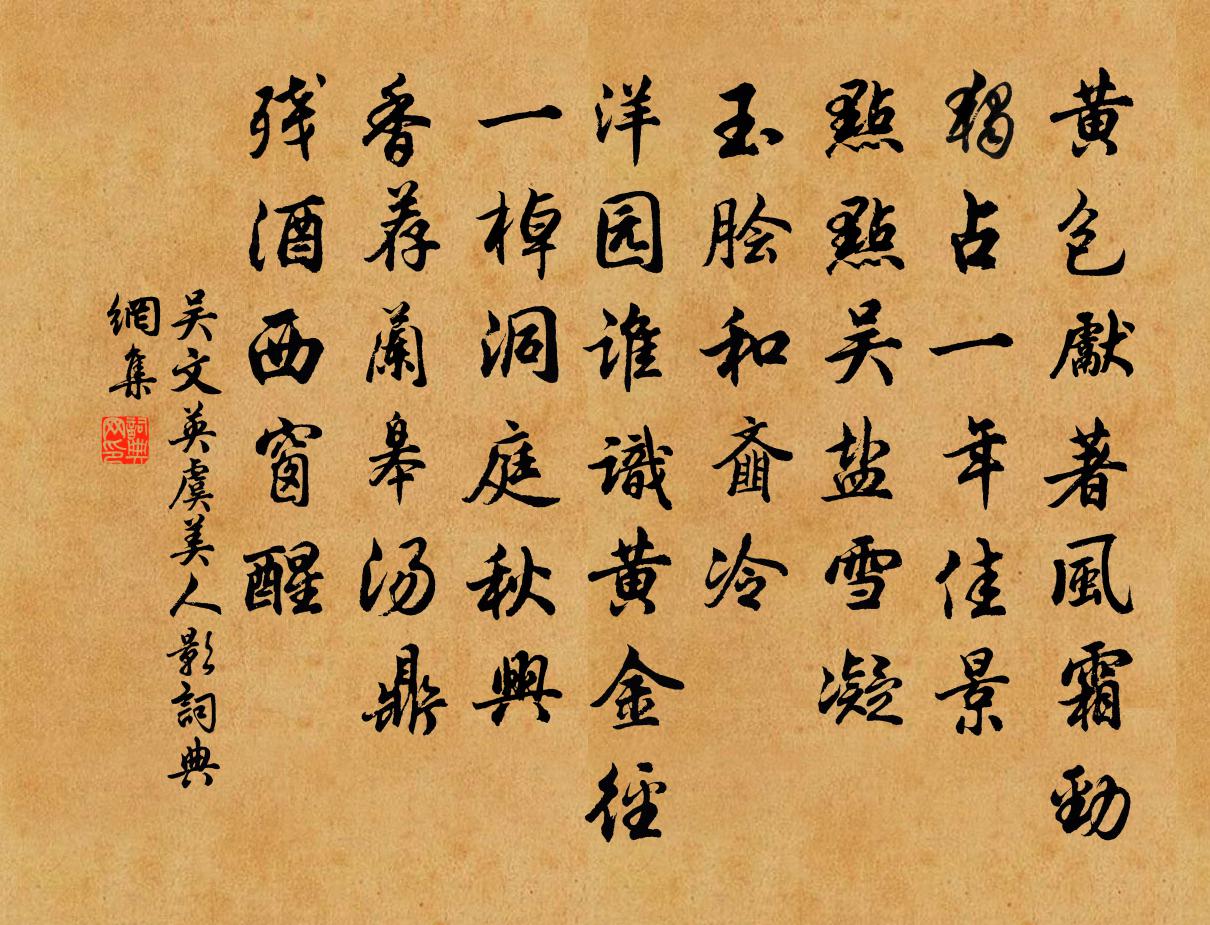 黄包獻著風霜勁
獨占一年佳景
點點吴盐雪凝
玉脍和齑冷
洋园谁識黄金徑
一棹洞庭秋興
香荐蘭皋汤鼎
残酒西窗醒
吴文英虞美人影詞典
網集
詞典网印